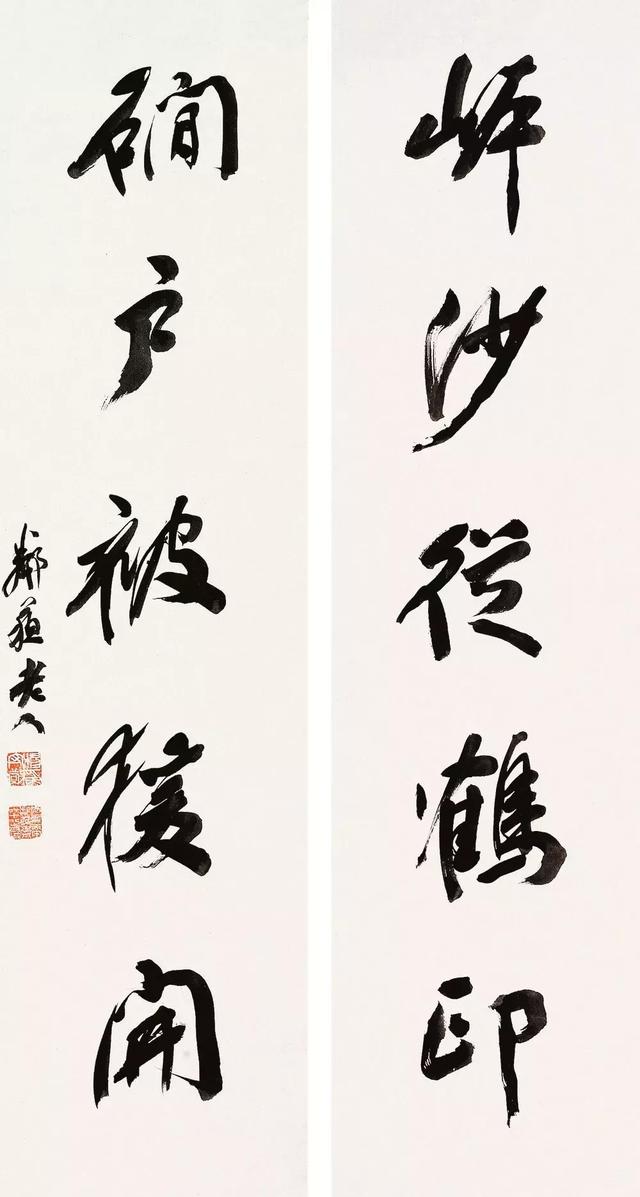 岸沙從鶴印
磵户被猨開
鄰蘇老人